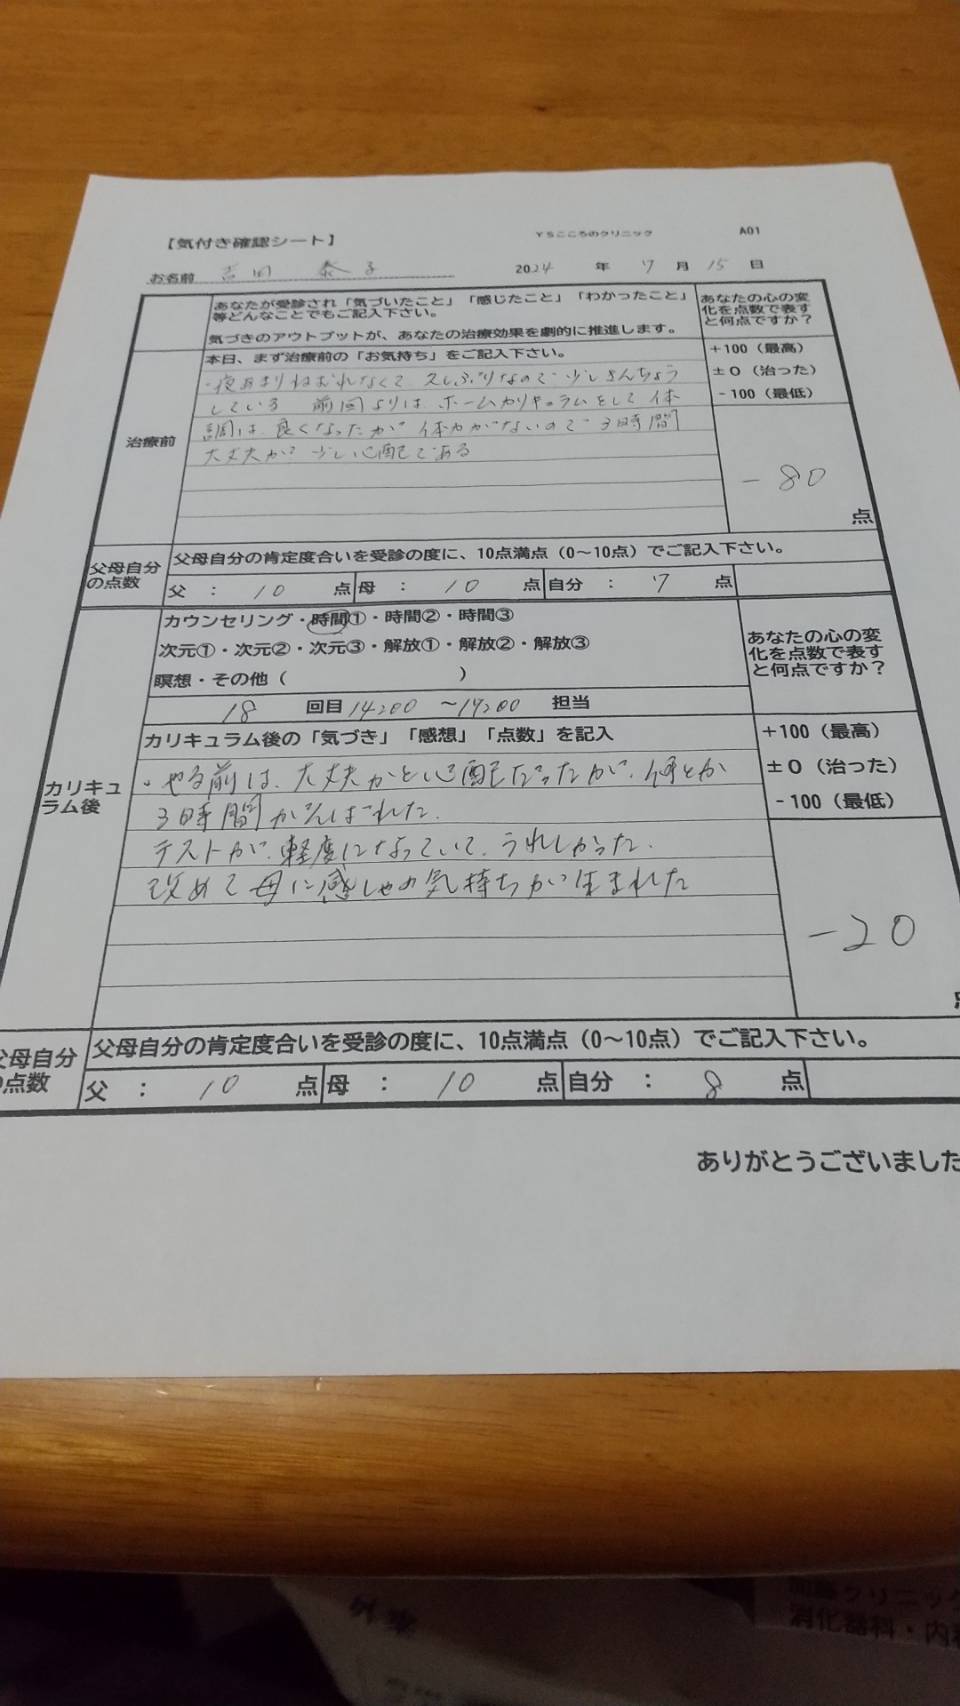 【気付き確認シート】
YSこころのクリニック
A01
お名前 吉田 泰子
2024 年 7 月 15 日
あなたが受診され「気づいたこと」「感じたこと」「わかったこと」
等どんなことでもご記入下さい。
気づきのアウトプットが、あなたの治療効果を劇的に推進します。
あなたの心の変
化を点数で表す
と何点ですか？
治療前
本日、まず治療前の「お気持ち」をご記入下さい。
・夜あまりねむれなくて 久しぶりなので少しきんちょう
している 前回よりは、ホームカリキュラムをして体
調は、良くなったが 体力がないので3時間
大丈夫か少し心配である
+100（最高）
±0（治った）
-100（最低）
-80
点
父母自分
の点数
父母自分の肯定度合いを受診の度に、10点満点（0～10点）でご記入下さい。
父 ： 10 点 母 ： 10 点 自分 ： 7 点
カリキュ
ラム後
カウンセリング・時間①・時間②・時間③
次元①・次元②・次元③・解放①・解放②・解放③
瞑想・その他（ ）
18 回目 14:00 ～17:00 担当
あなたの心の変
化を点数で表す
と何点ですか？
カリキュラム後の「気づき」「感想」「点数」を記入
・やる前は、大丈夫かと心配だったが、何とか
3時間がんばれた。
テストが、軽度になっていて、うれしかった。
改めて母に感しゃの気持ちが生まれた
+100（最高）
±0（治った）
-100（最低）
-20
父母自分
の点数
父母自分の肯定度合いを受診の度に、10点満点（0～10点）でご記入下さい。
父 ： 10 点 母 ： 10 点 自分 ： 8 点
ありがとうございました
クリニック
消化器科・内科